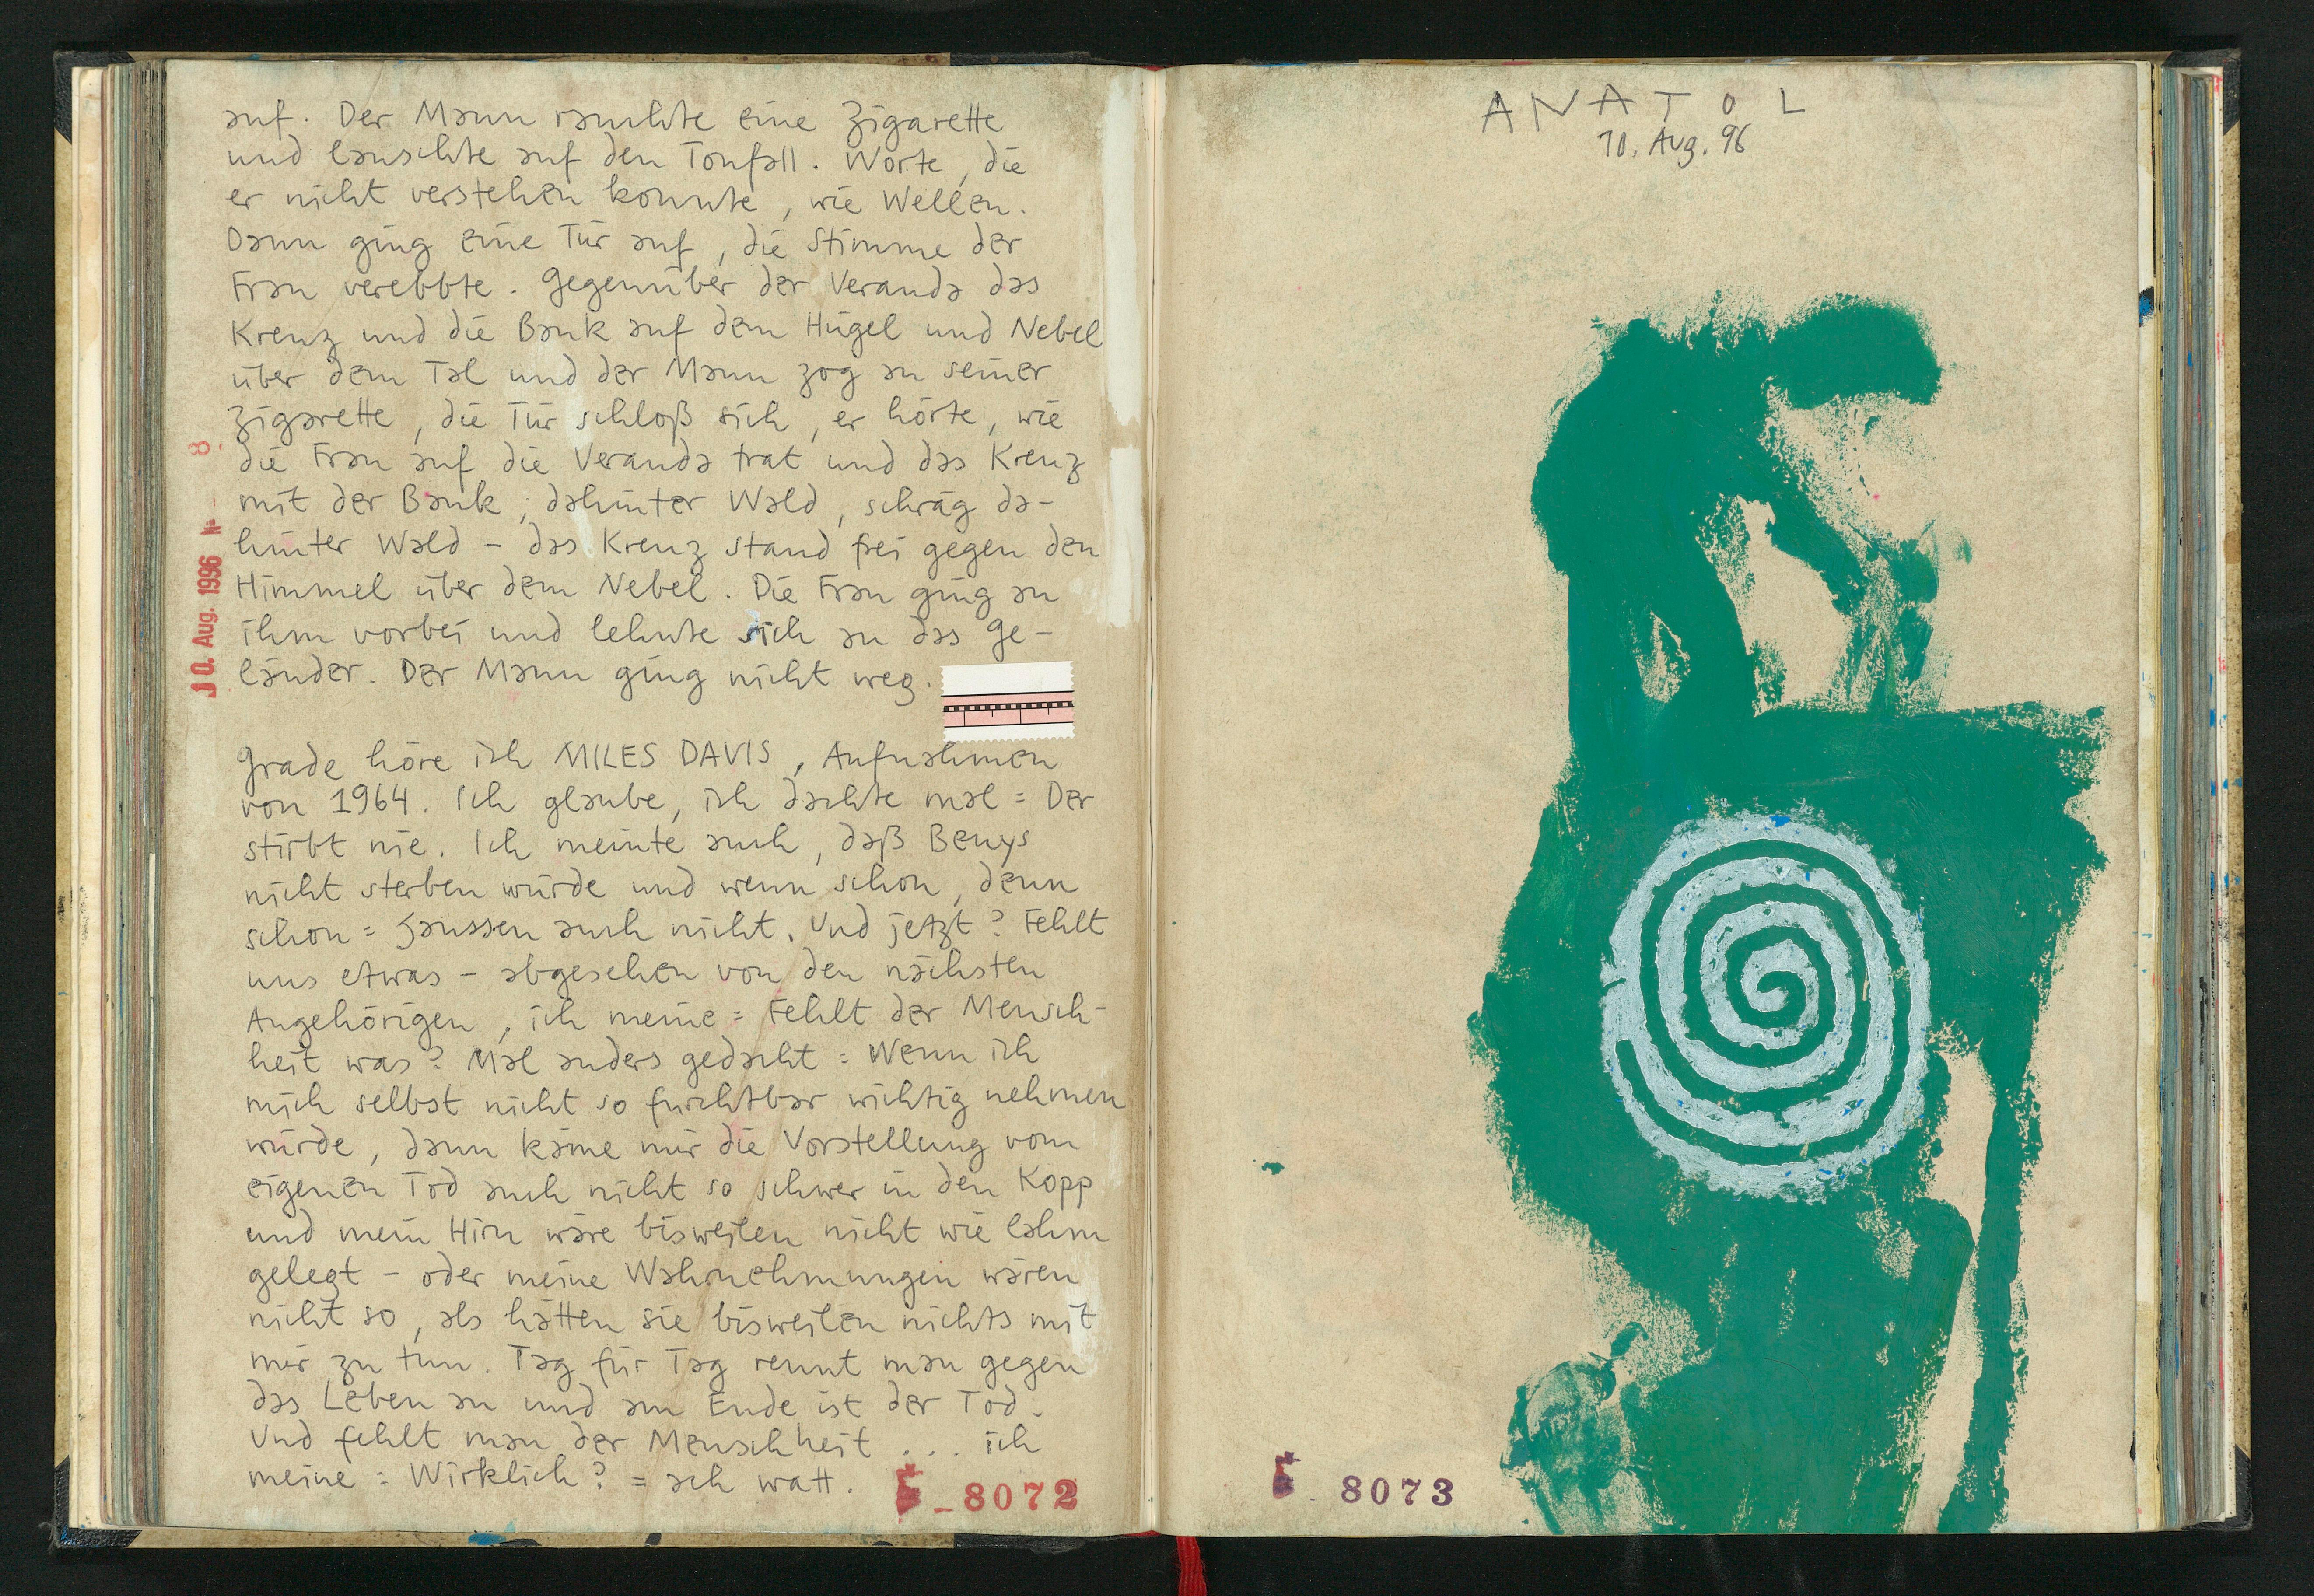 auf. Der Mann rauchte eine Zigarette
und lauschte auf den Tonfall. Worte, die
er nicht verstehen konnte, wie Wellen.
Dann ging eine Tür auf, die Stimme der
Frau verebbte. Gegenüber der Veranda das
Kreuz und die Bank auf dem Hügel und Nebel
über dem Tal und der Mann zog an seiner
Zigarette, die Tür schloß sich, er hörte, wie
die Frau auf die Veranda trat und das Kreuz
mit der Bank, dahinter Wald, schräg da-
hinter Wald - das Kreuz stand frei gegen den
Himmel über dem Nebel. Die Frau ging an
ihm vorbei und lehnte sich an das Ge-
länder. Der Mann ging nicht weg.
Grade höre ich MILES DAVIS, Aufnahmen
von 1964. Ich glaube, ich dachte mal = Der
stirbt nie. Ich meinte auch, daß Beuys
nicht sterben würde und wenn schon, denn
schon = Janssen auch nicht. Und jetzt? Fehlt
uns etwas - abgesehen von den nächsten
Angehörigen, ich meine = Fehlt der Mensch-
heit was? Mal anders gedacht = Wenn ich
mich selbst nicht so furchtbar wichtig nehmen
würde, dann käme mir die Vorstellung vom
eigenen Tod auch nicht so schwer in den Kopp
und mein Hirn wäre bisweilen nicht wie lahm
gelegt - oder meine Wahrnehmungen wären
nicht so, als hätten sie bisweilen nichts mit
mir zu tun. Tag für Tag rennt man gegen
das Leben an und am Ende ist der Tod.
Und fehlt man der Menschheit ... ich
meine = Wirklich? = ach watt.
10. Aug. 1996
8
8072
ANATOL
10. Aug. 96
8073